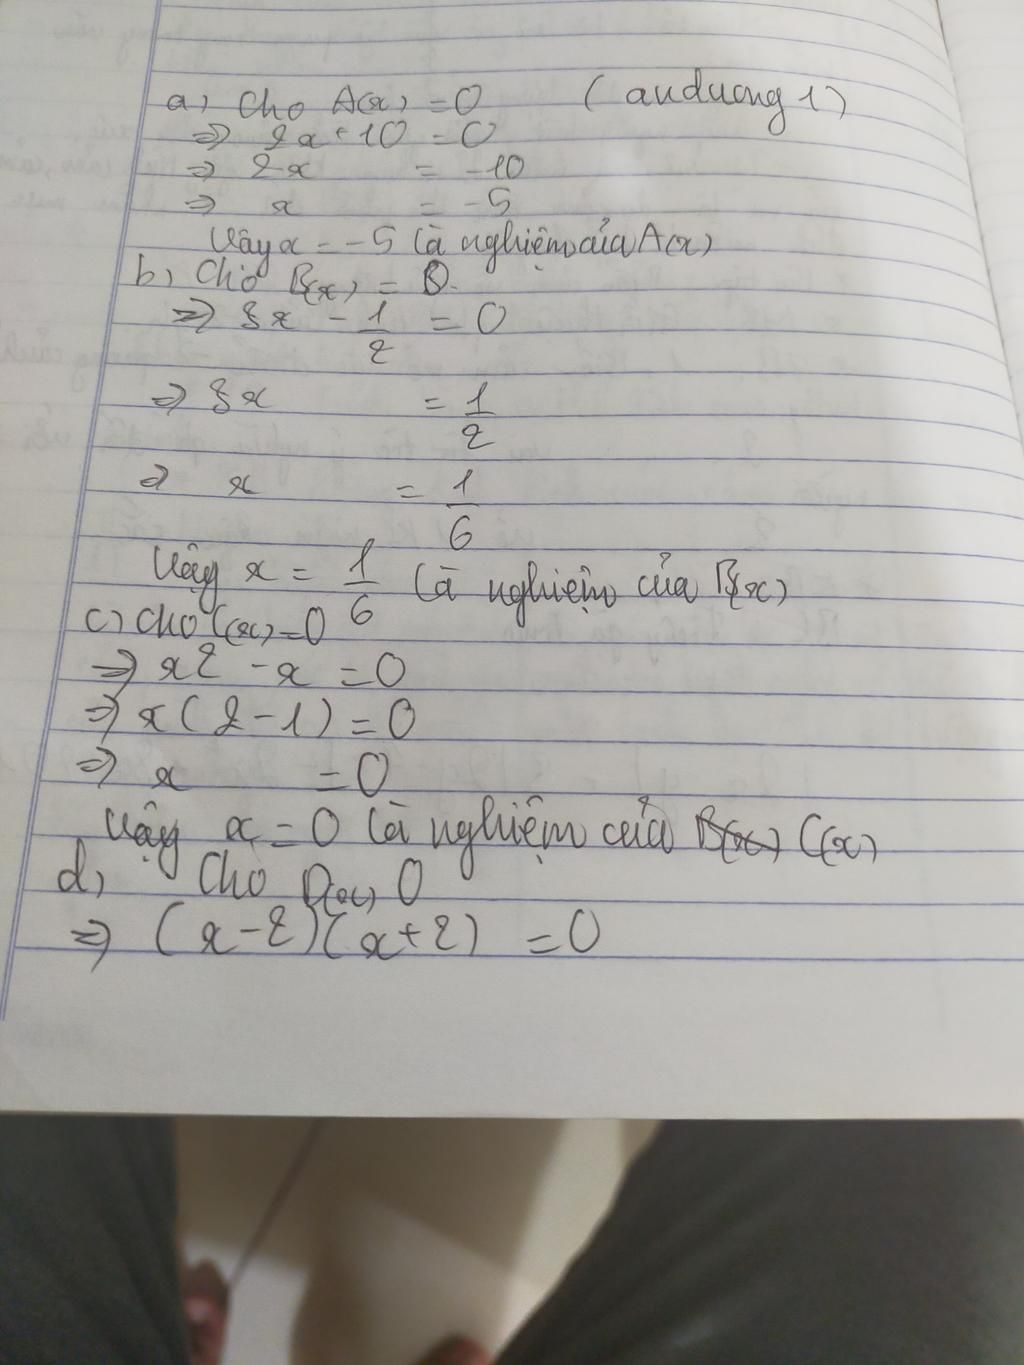 a) Cho A(x) = 0 (anduong1)
=> 2x + 10 = 0
=> 2x = -10
=> x = -5
Vậy x = -5 là nghiệm của A(x)
b) Cho B(x) = 0.
=> 3x - 1/2 = 0
=> 3x = 1/2
=> x = 1/6
Vậy x = 1/6 là nghiệm của B(x)
c) Cho C(x) = 0
=> x² - x = 0
=> x(2-1) = 0
=> x = 0
Vậy x = 0 là nghiệm của B(x) C(x)
d) Cho D(x) 0
=> (x-2)(x+2) = 0